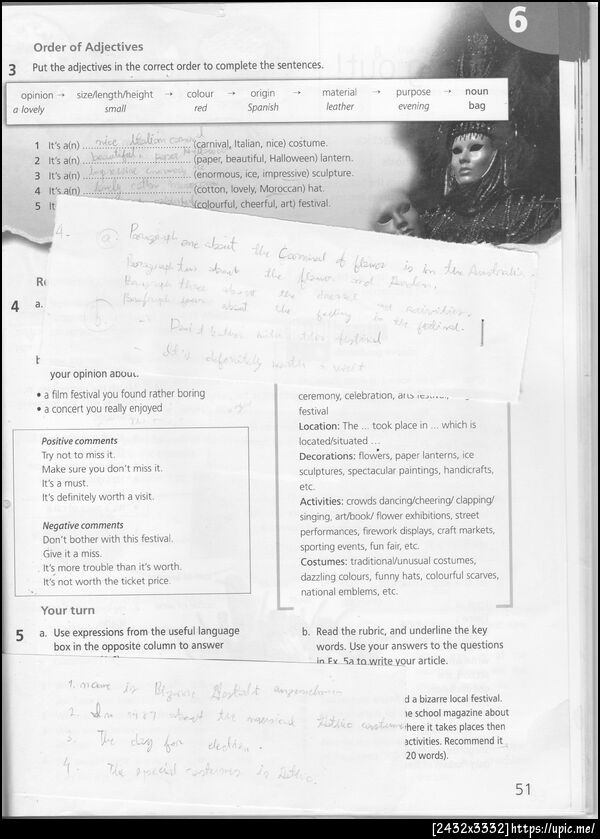 6
Order of Adjectives
3 Put the adjectives in the correct order to complete the sentences.
opinion → size/length/height → colour → origin → material → purpose → noun
a lovely small red Spanish leather evening bag
1 It's a(n) nice Italian carnival (carnival, Italian, nice) costume.
2 It's a(n) beautiful, paper (paper, beautiful, Halloween) lantern.
3 It's a(n) (enormous, ice, impressive) sculpture.
4 It's a(n) lovely cotton (cotton, lovely, Moroccan) hat.
5 It (colourful, cheerful, art) festival.
4.
a. Paragraph one about the Carnival of flower is in the Australia.
Paragraph two about the flower and Garden.
Paragraph three about the and activities.
Paragraph four about the feeling in the festival.
b.
- Don't bother with this festival
- It's definitely worth a visit
4 a.
your opinion about.
• a film festival you found rather boring
• a concert you really enjoyed
Positive comments
Try not to miss it.
Make sure you don't miss it.
It's a must.
It's definitely worth a visit.
Negative comments
Don't bother with this festival.
Give it a miss.
It's more trouble than it's worth.
It's not worth the ticket price.
ceremony, celebration, arts
festival
Location: The ... took place in ... which is
located/situated ...
Decorations: flowers, paper lanterns, ice
sculptures, spectacular paintings, handicrafts,
etc.
Activities: crowds dancing/cheering/ clapping/
singing, art/book/ flower exhibitions, street
performances, firework displays, craft markets,
sporting events, fun fair, etc.
Costumes: traditional/unusual costumes,
dazzling colours, funny hats, colourful scarves,
national emblems, etc.
Your turn
5 a. Use expressions from the useful language
box in the opposite column to answer
b. Read the rubric, and underline the key
words. Use your answers to the questions
in Ex. 5a to write your article.
1. name is Bizarre
2. In 1987 about the
3. The day for election.
4. The special costumes is
d a bizarre local festival.
e school magazine about
here it takes places then
activities. Recommend it
20 words).
51
[2432x3332]https://upic.me/